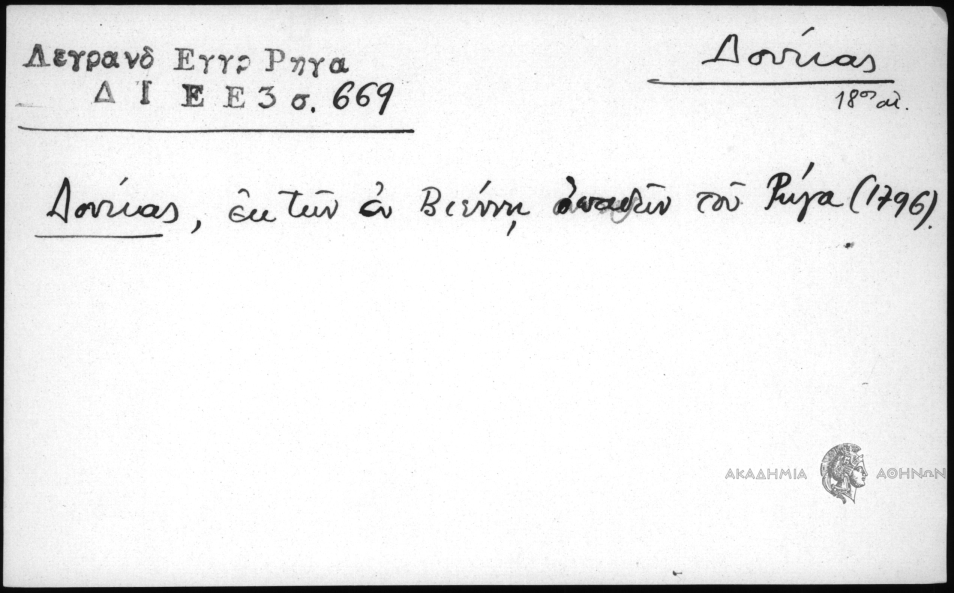 Λεγρανδ Εγγρ Ρηγα
Δ Ι Ε Ε 3 σ. 669
Δούκας
18ος αἰ.
Δούκας, ἐκ τῶν ἐν Βιέννῃ ὀπαδῶν τοῦ Ρήγα (1796).
ΑΚΑΔΗΜΙΑ ΑΘΗΝΩΝ